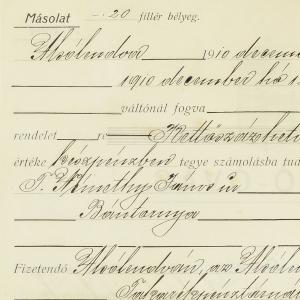 Másolat -.20 fillér bélyeg.
Alsólendva 1910 decem
1910 december hó 1
váltónál fogva
rendelet re Kettőszázhetv
értéke készpénzben tegye számolásba tud
T. Némethy János úr
Bántornya
Fizetendő Alsólendván, az Alsólen
Takarékpénztárná